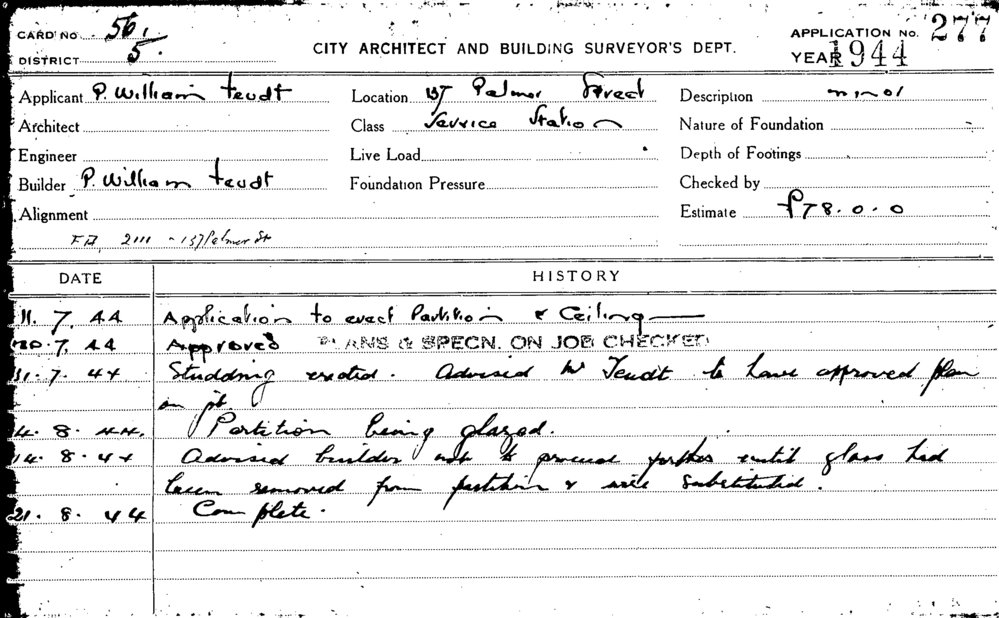 CARD No 56/
DISTRICT 5.
CITY ARCHITECT AND BUILDING SURVEYOR'S DEPT.
APPLICATION No. 277
YEAR 1944
Applicant P. William Teudt
Architect
Engineer
Builder P. William Teudt
Alignment
2111 - 137 Palmer St
Location 137 Palmer Street
Class Service Station
Live Load
Foundation Pressure
Description minor
Nature of Foundation
Depth of Footings
Checked by
Estimate £78.0.0
DATE HISTORY
11. 7. 44 Application to erect Partition & Ceiling
20. 7. 44 Approved PLANS & SPECN. ON JOB CHECKED
31. 7. 44 Studding erected. Advised Mr Teudt to have approved plan
on job
4. 8. 44. Partition being glazed.
14. 8. 44 Advised builder not to proceed further until glass had
been removed from partition & wire substituted.
21. 8. 44 Complete.